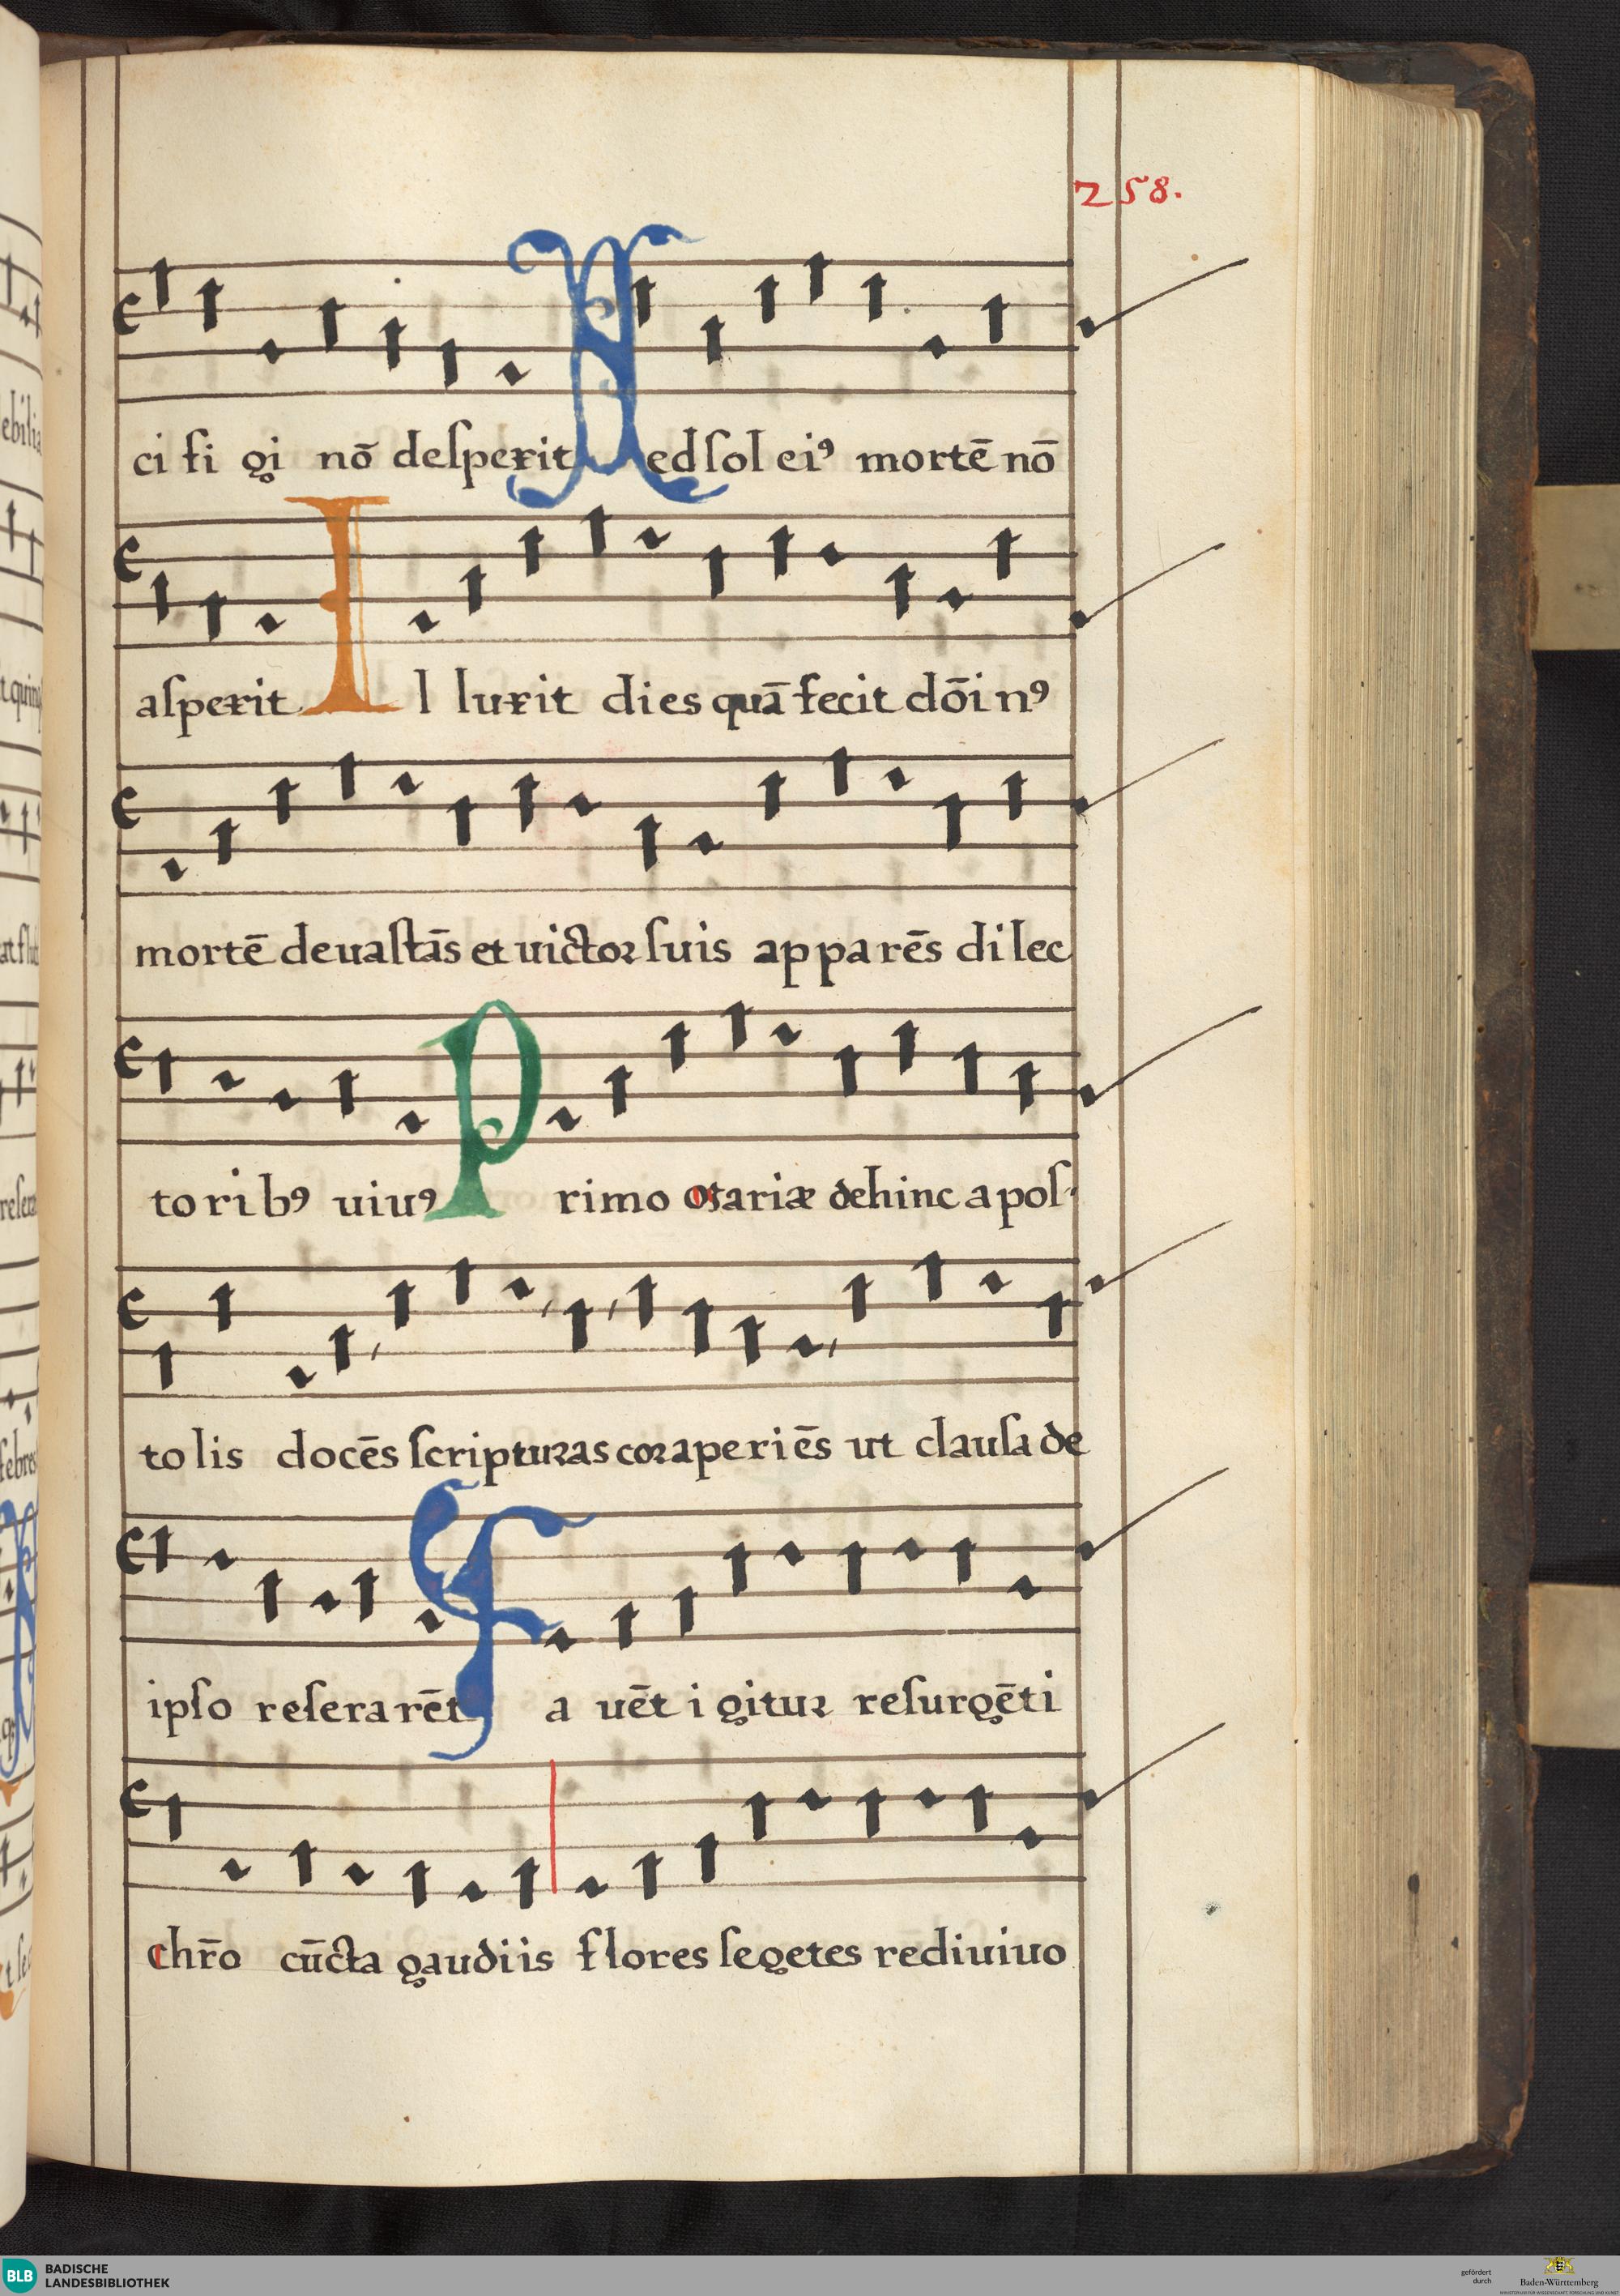 258.
ci fi gi nō deſpexit Sed ſol eiꝰ mortē nō
aſpexit Il luxit dies quā fecit dōi nꝰ
mortē deuaſtās et uictoꝛ ſuis apparēs dilec
toribꝰ uiuꝰ Primo Mariæ dehinc apoſ
tolis docēs ſcriptuꝛas coꝛ aperiēs ut clauſa de
ipſo reſerarēt Fa uēt igituꝛ reſurgēti
chr̄o cūcta gaudiis flores ſegetes rediuiuo
BLB BADISCHE
LANDESBIBLIOTHEK
gefördert
durch
Baden-Württemberg